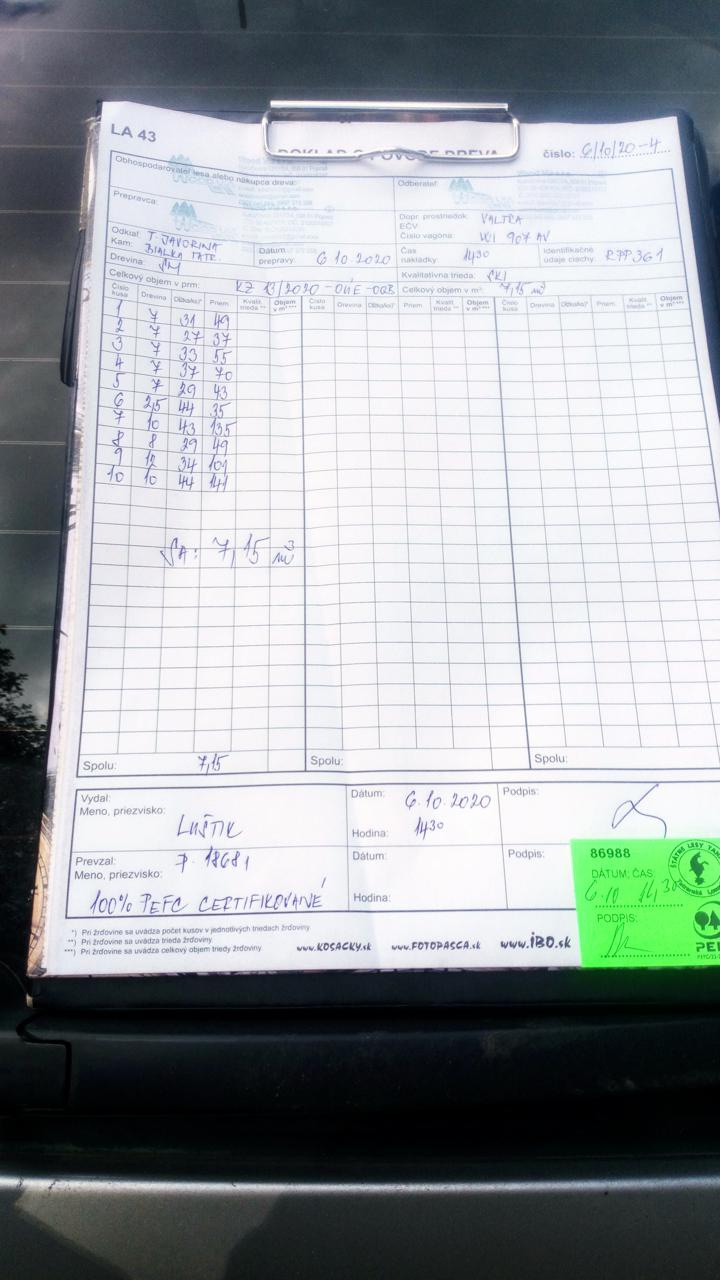 LA 43
DOKLAD O PÔVODE DREVA
číslo: 6/10/20-4
Obhospodarovateľ lesa alebo nákupca dreva:
Odberateľ:
Prepravca:
Dopr. prostriedok: VALTRA
EČV
Číslo vagóna: 907 AV
Odkiaľ: T. JAVORINA
Kam: BIALKA TATR.
Dátum prepravy: 6.10.2020
Čas nakládky: 1430
Identifikačné údaje ciachy: RPP361
Drevina: SM
Kvalitatívna trieda:
Celkový objem v prm: KZ 13/2020-OÚE-OQB
Celkový objem v m³: 7,15 m³
Číslo kusa Drevina Dĺžka/ks)* Priem. Kvalit. trieda ** Objem v m³ *** Číslo kusa Drevina Dĺžka/ks)* Priem. Kvalit. trieda ** Objem v m³ *** Číslo kusa Drevina Dĺžka/ks)* Priem. Kvalit. trieda ** Objem v m³ ***
1 7 31 49
2 7 27 37
3 7 33 55
4 7 37 70
5 7 29 43
6 2,5 44 35
7 10 43 135
8 8 29 49
9 12 34 101
10 10 44 141
SA: 7,15 m³
Spolu: 7,15
Spolu:
Spolu:
Vydal:
Meno, priezvisko: LUŠTIK
Dátum: 6.10.2020
Hodina: 1430
Podpis:
Prevzal:
Meno, priezvisko: P. 18681
Dátum:
Hodina:
Podpis:
100% PEFC CERTIFIKOVANÉ
86988
DÁTUM, ČAS
6.10 14,30
PODPIS:
ŠTÁTNE LESY
*) Pri žrďovine sa uvádza počet kusov v jednotlivých triedach žrďoviny
**) Pri žrďovine sa uvádza trieda žrďoviny.
***) Pri žrďovine sa uvádza celkový objem triedy žrďoviny.
www.KOSACKY.sk www.FOTOPASCA.sk www.iBO.sk